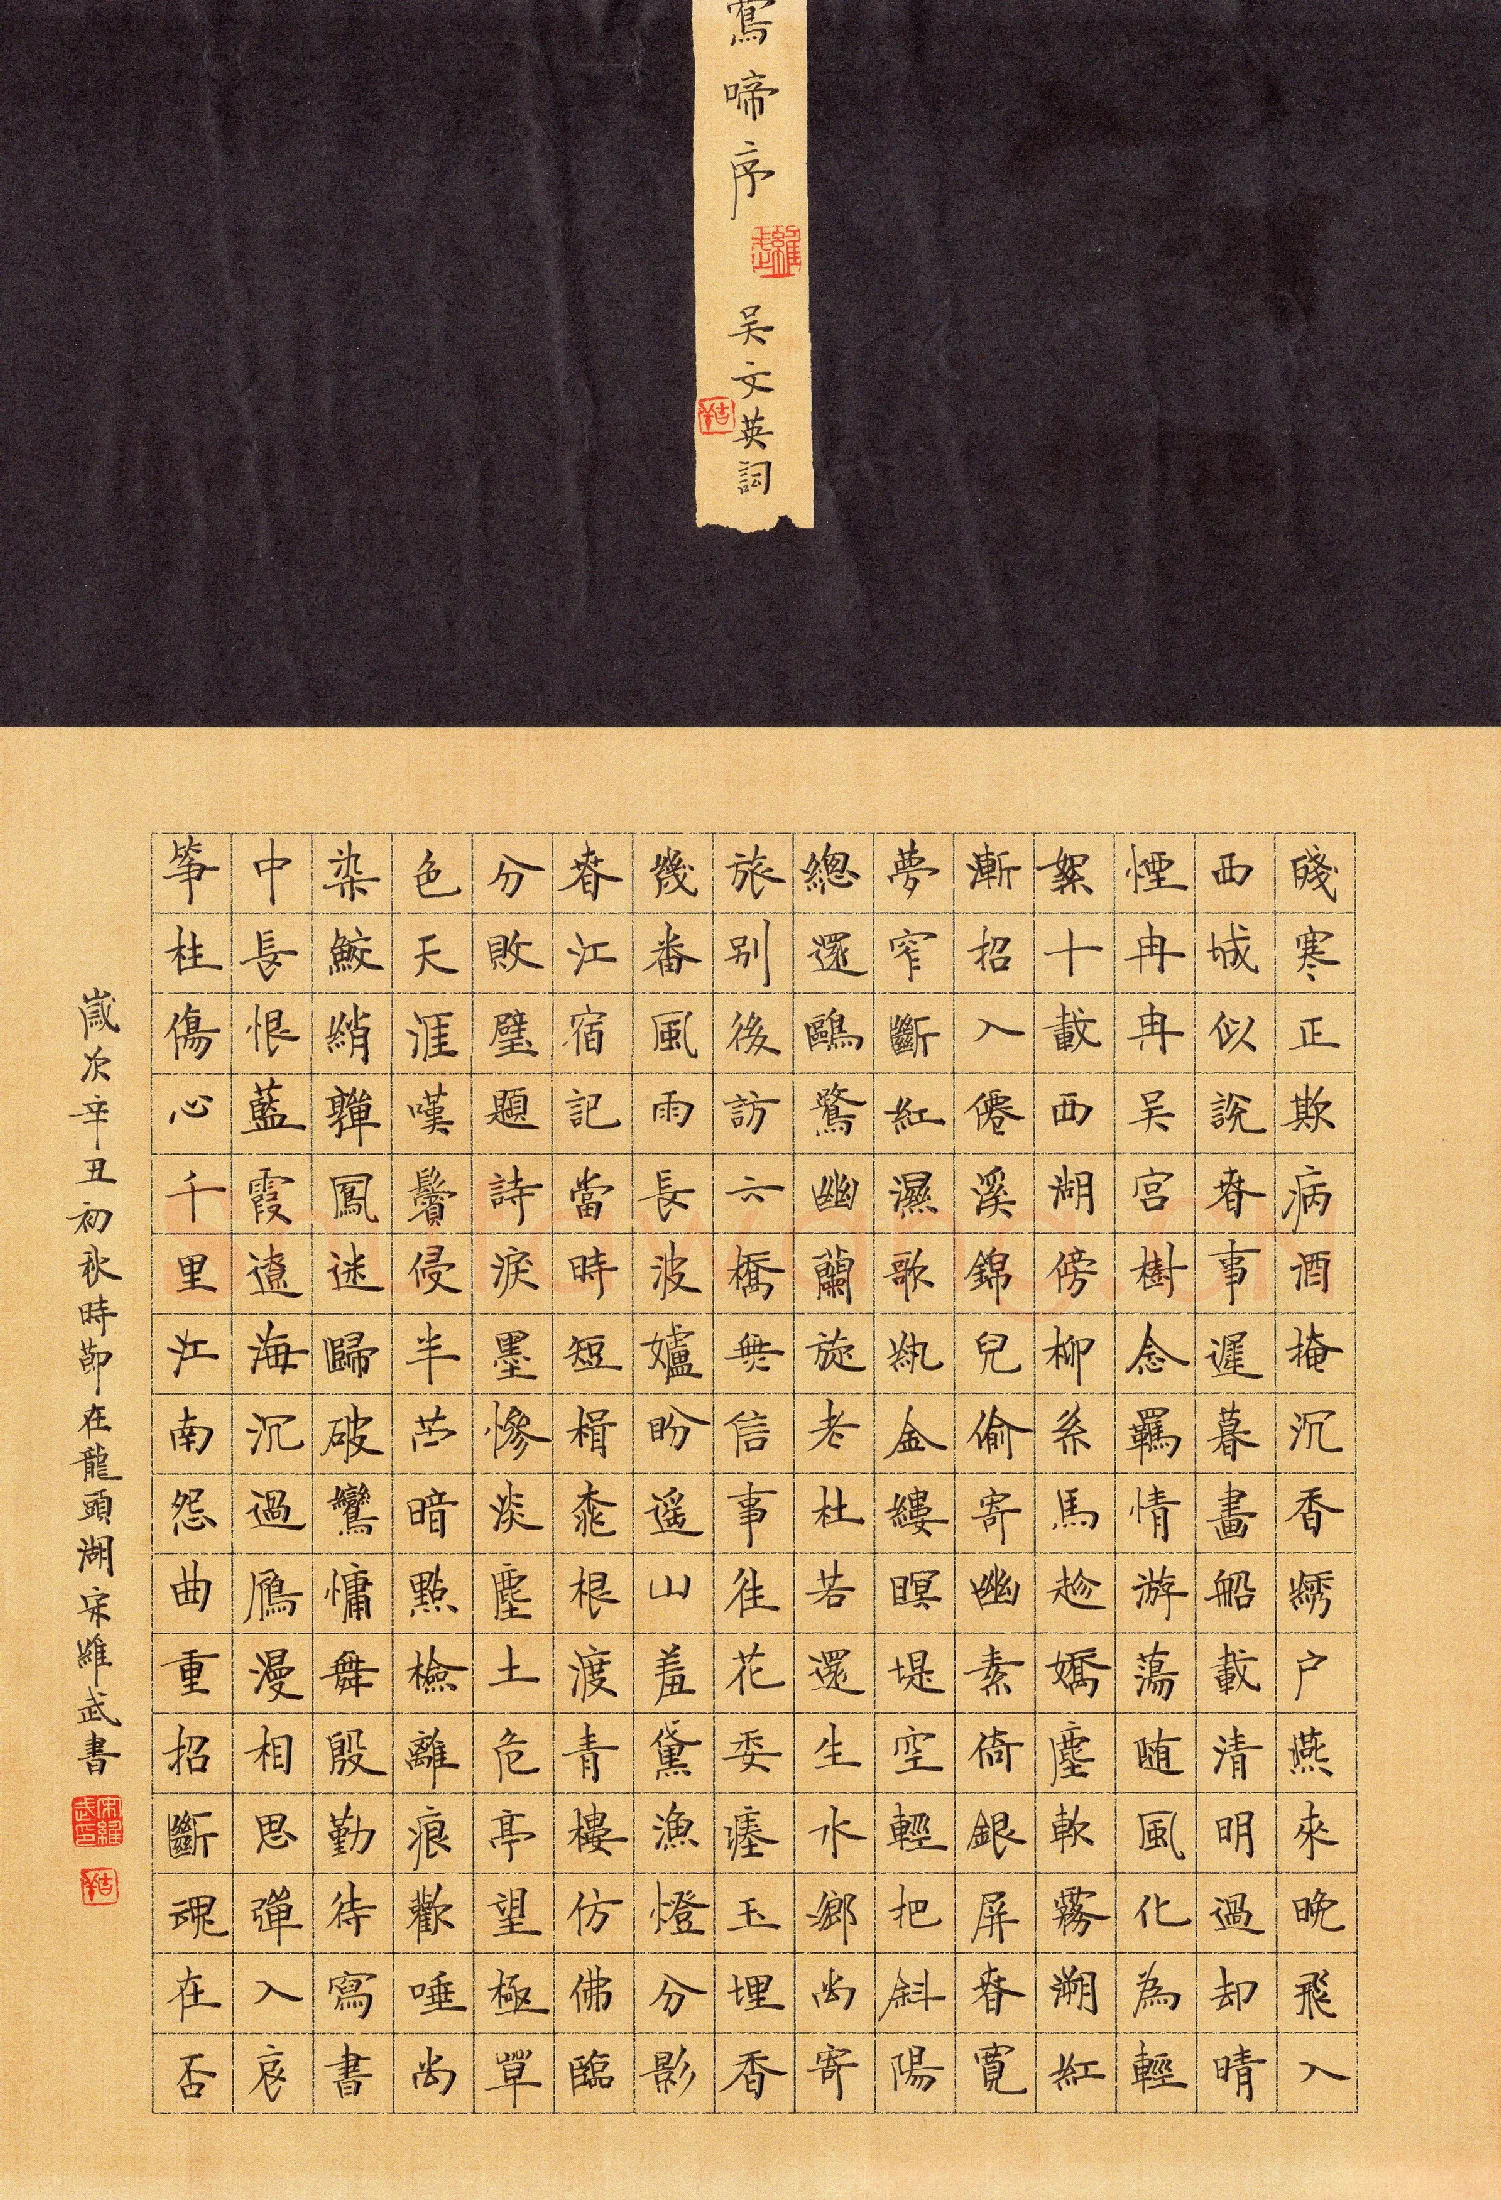 鶯啼序
吳文英詞
殘寒正欺病酒掩沉香繡户燕來晚飛入
西城似說春事遲暮畫船載清明過却晴
煙冉冉吴宫樹念羈情游蕩随風化為輕
絮十載西湖傍柳系馬趁嬌塵軟霧溯紅
漸招入僊溪錦兒偷寄幽素倚銀屏春寬
夢窄斷紅濕歌紈金縷暝堤空輕把斜陽
總還鷗鷺幽蘭旋老杜若還生水鄉尚寄
旅别後訪六橋無信事往花委瘞玉埋香
幾番風雨長波妒盼遥山羞黛漁燈分影
春江宿記當時短楫桃根渡青樓仿佛臨
分敗壁題詩淚墨慘淡塵土危亭望極草
色天涯嘆鬢侵半苎暗點檢離痕歡唾尚
染鮫綃嚲鳳迷歸破鸞慵舞殷勤待寫書
中長恨藍霞遼海沉過鴈漫相思彈入哀
筝柱傷心千里江南怨曲重招斷魂在否
歲次辛丑初秋時節在龍頭湖宋維武書